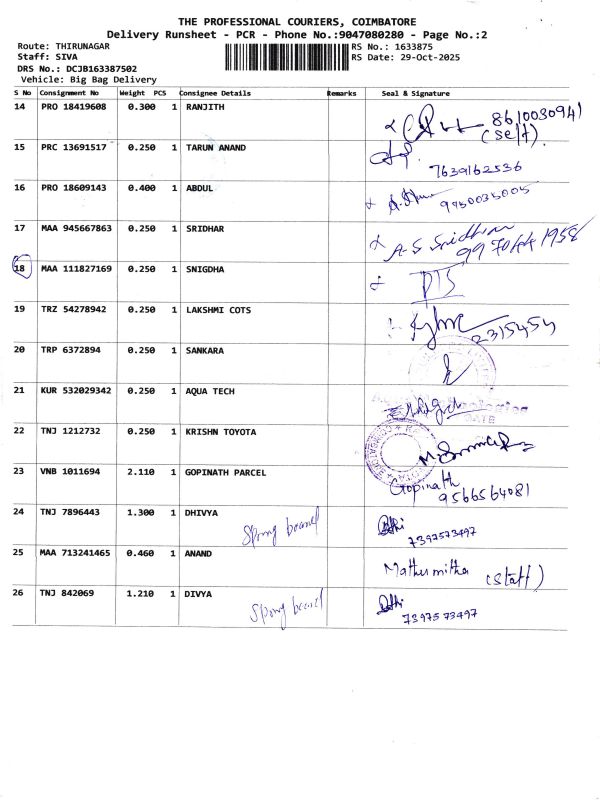 THE PROFESSIONAL COURIERS, COIMBATORE
Delivery Runsheet - PCR - Phone No.:9047080280 - Page No.:2
Route: THIRUNAGAR RS No.: 1633875
Staff: SIVA RS Date: 29-Oct-2025
DRS No.: DCJB163387502
Vehicle: Big Bag Delivery
S No Consignment No Weight PCS Consignee Details Remarks Seal & Signature
14 PRO 18419608 0.300 1 RANJITH 8610030941
(self)
15 PRC 13691517 0.250 1 TARUN ANAND
7639162536
16 PRO 18609143 0.400 1 ABDUL 9950035005
17 MAA 945667863 0.250 1 SRIDHAR A-S Sridhar
18 MAA 111827169 0.250 1 SNIGDHA
19 TRZ 54278942 0.250 1 LAKSHMI COTS
2315454
20 TRP 6372894 0.250 1 SANKARA
21 KUR 532029342 0.250 1 AQUA TECH
DATE
22 TNJ 1212732 0.250 1 KRISHN TOYOTA
23 VNB 1011694 2.110 1 GOPINATH PARCEL Gopinath
9566564081
24 TNJ 7896443 1.300 1 DHIVYA
7397573497
25 MAA 713241465 0.460 1 ANAND Mathumitha (staff)
26 TNJ 842069 1.210 1 DIVYA
7397573497